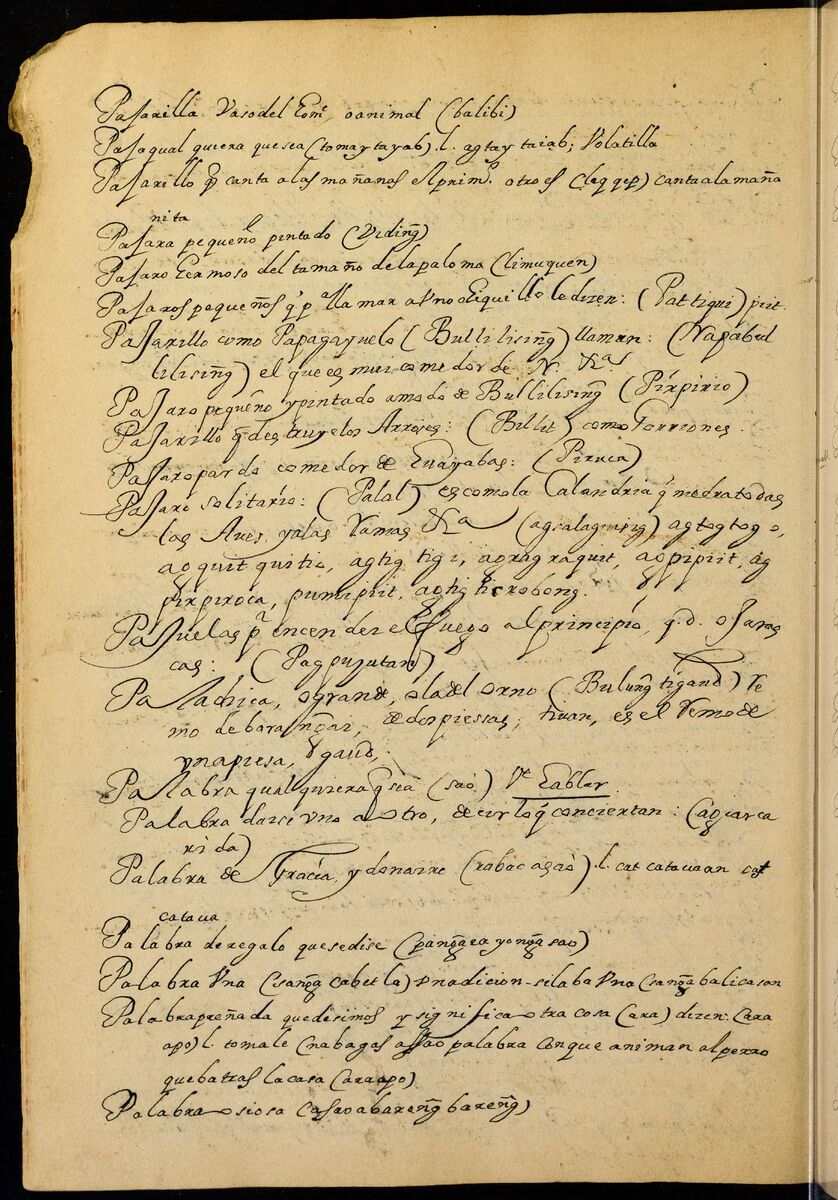 Pasarilla. Vaso del Home, o animal (balibi)
Pasa qual quiera que sea (tomaytayab) .l. agtay taiab; Volatilla
Pasarillo q canta a las mañanas el prim.º otro es (leg gep) canta a la maña
nita
Pasara pequeño pintado (Viding)
Pasaro Hermoso del tamaño de la paloma (limuquen)
Pasaros pequeños q p.ª lla mar a Vno le dizen: (Pattiqui) piit.
Pasarillo como Papagayuelo (Bullilising) llaman: (Napabul
lilising) el que es mui comedor de N. &ª
Pasaro pequeño y pintado a modo de Bullilising (Pirpirio)
Pasarillo q destruye los Arroses: (Billit) como Gorriones.
Pasaro pardo comedor de Guayabas: (Piruca)
Pasaro solitario: (Palal) es como la Calandria q medra todas
las Aves, y a las Ramas &ª (agsalagnisig) agtogtogo,
agquit quitio, agtig tigi, agragraquit, agpipiit, ag
pirpiroca, pumipiit, agtigticrobong.
Pasuelas pª encender el fuego al principio, q.d. ojaras
cas: (Pagpuputan)
Pala chica, o grande, o la del orno (Bulung tigaud) Re
mo de barangai, de dos piessas; tiuan, es el Remo de
vna piesa, Ygaud,
Palabra qual quiera q sea (sao) Vᵉ Hablar
Palabra darse vno a otro, decir lo q conciertan: (agcarca
rida)
Palabra de Gracia, y donaire (rabac a sao) .l. cat catauaan cat
cataua
Palabra de regalo que se dise (pangga yongga sao)
Palabra Vna (sangga cabetla) vna dicion - silaba Vna (sangga balicason
Palabra preñada que desimos y significa otra cosa (ara) dizen: (ara
apo) l. tomale (nabagas a sao palabra con que animan al perro
que batras la casa (ara apo)
Palabra osiosa (a sao a bareng bareng)